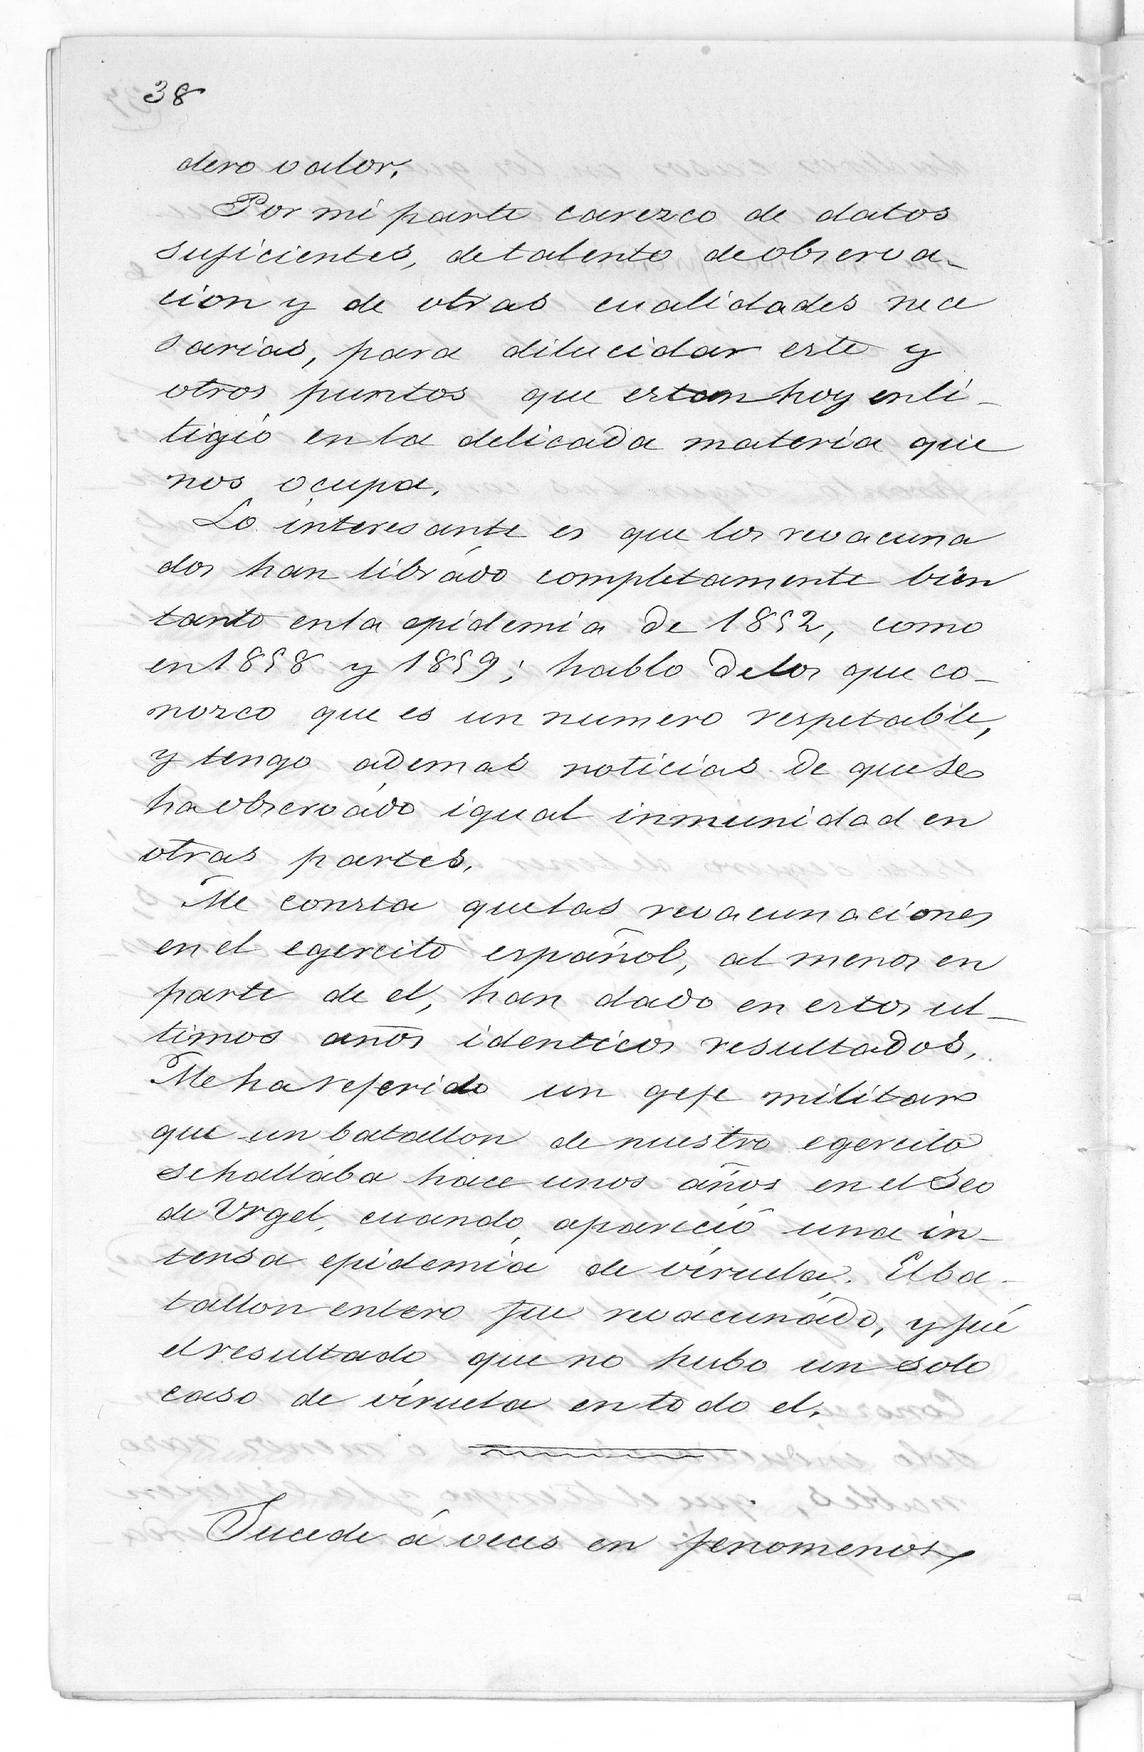 38
dero valor.
Por mi parte carezco de datos
suficientes, de talento de observa-
cion y de otras cualidades nece
sarias, para dilucidar este y
otros puntos que estan hoy en li-
tigio en la delicada materia que
nos ocupa.
Lo interesante es que los revacuna
dos han librado completamente bien
tanto en la epidemia de 1852, como
en 1858 y 1859; hablo de los que co-
nozco que es un numero respetable,
y tengo ademas noticias de que se
ha observado igual inmunidad en
otras partes.
Me consta que las revacunaciones
en el egercito español, al menos en
parte de el, han dado en estos ul-
timos años identicos resultados.
Me ha referido un gefe militar
que un batallon de nuestro egercito
se hallaba hace unos años en el Seo
de Urgel, cuando apareció una in-
tensa epidemia de viruela. El ba-
tallon entero fue revacunado, y fué
el resultado que no hubo un solo
caso de viruela en todo el.
Sucede á veces en fenomenos